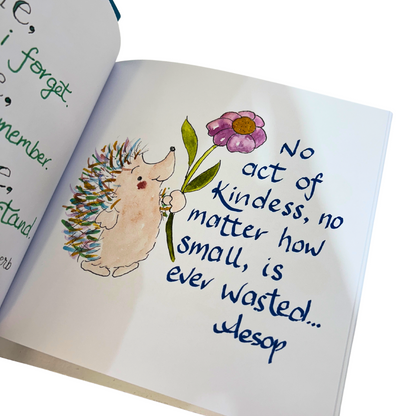 e,
i forget.
e,
member.
e,
stand.
erb
No
act of
Kindess, no
matter how
small, is
ever wasted...
Aesop